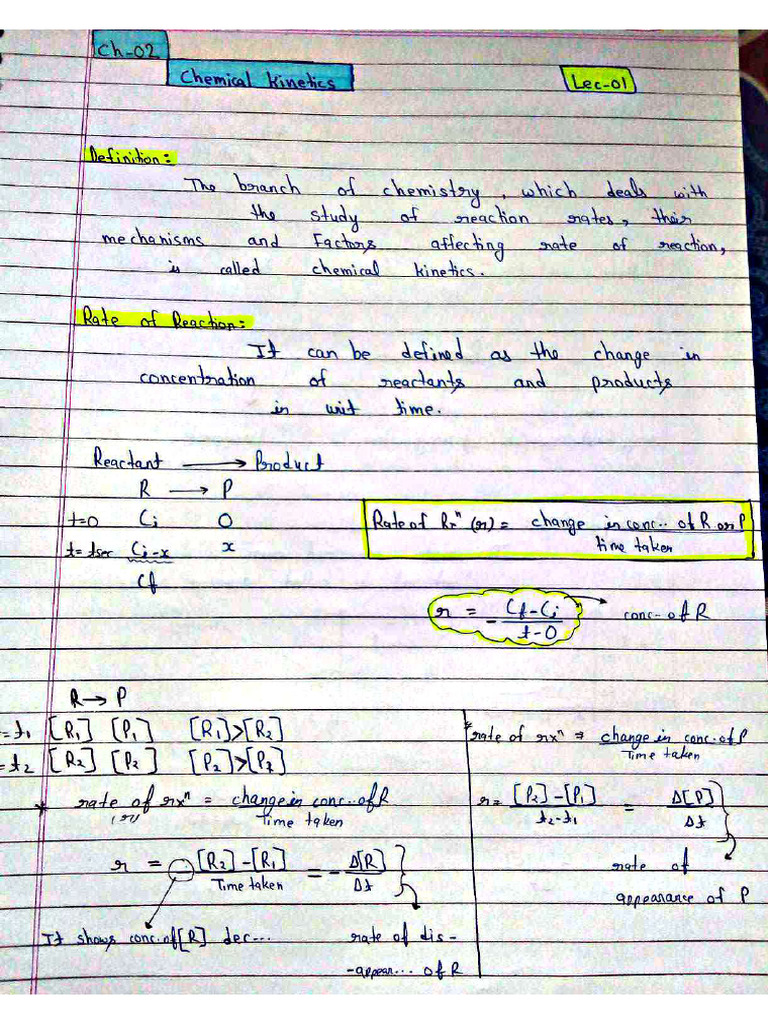 Ch-02
Chemical Kinetics
Lec-01
Definition:
The branch of chemistry, which deals with
the study of reaction rates, their
mechanisms and Factors affecting rate of reaction,
is called chemical kinetics.
Rate of Reaction:
It can be defined as the change in
concentration of reactants and products
in unit time.
Reactant ⟶ Product
R ⟶ P
t=0 Ci 0
t= tsec Ci-x x
Cf
Rate of Rxⁿ (r) = change in conc.. of R or P
time taken
r = - Cf-Ci / t-0 → conc- of R
R → P
=t₁ [R₁] [P₁] [R₁]>[R₂]
=t₂ [R₂] [P₂] [P₂]>[P₁]
* rate of rxⁿ = change in conc.. of R
(r) Time taken
r = - [R₂]-[R₁] / Time taken = - Δ[R] / Δt
It shows conc.of[R] dec...
rate of dis-
-appear... of R
*rate of rxⁿ = change in conc. of P
Time taken
r = [P₂]-[P₁] / t₂-t₁ = Δ[P] / Δt
rate of
appearance of P